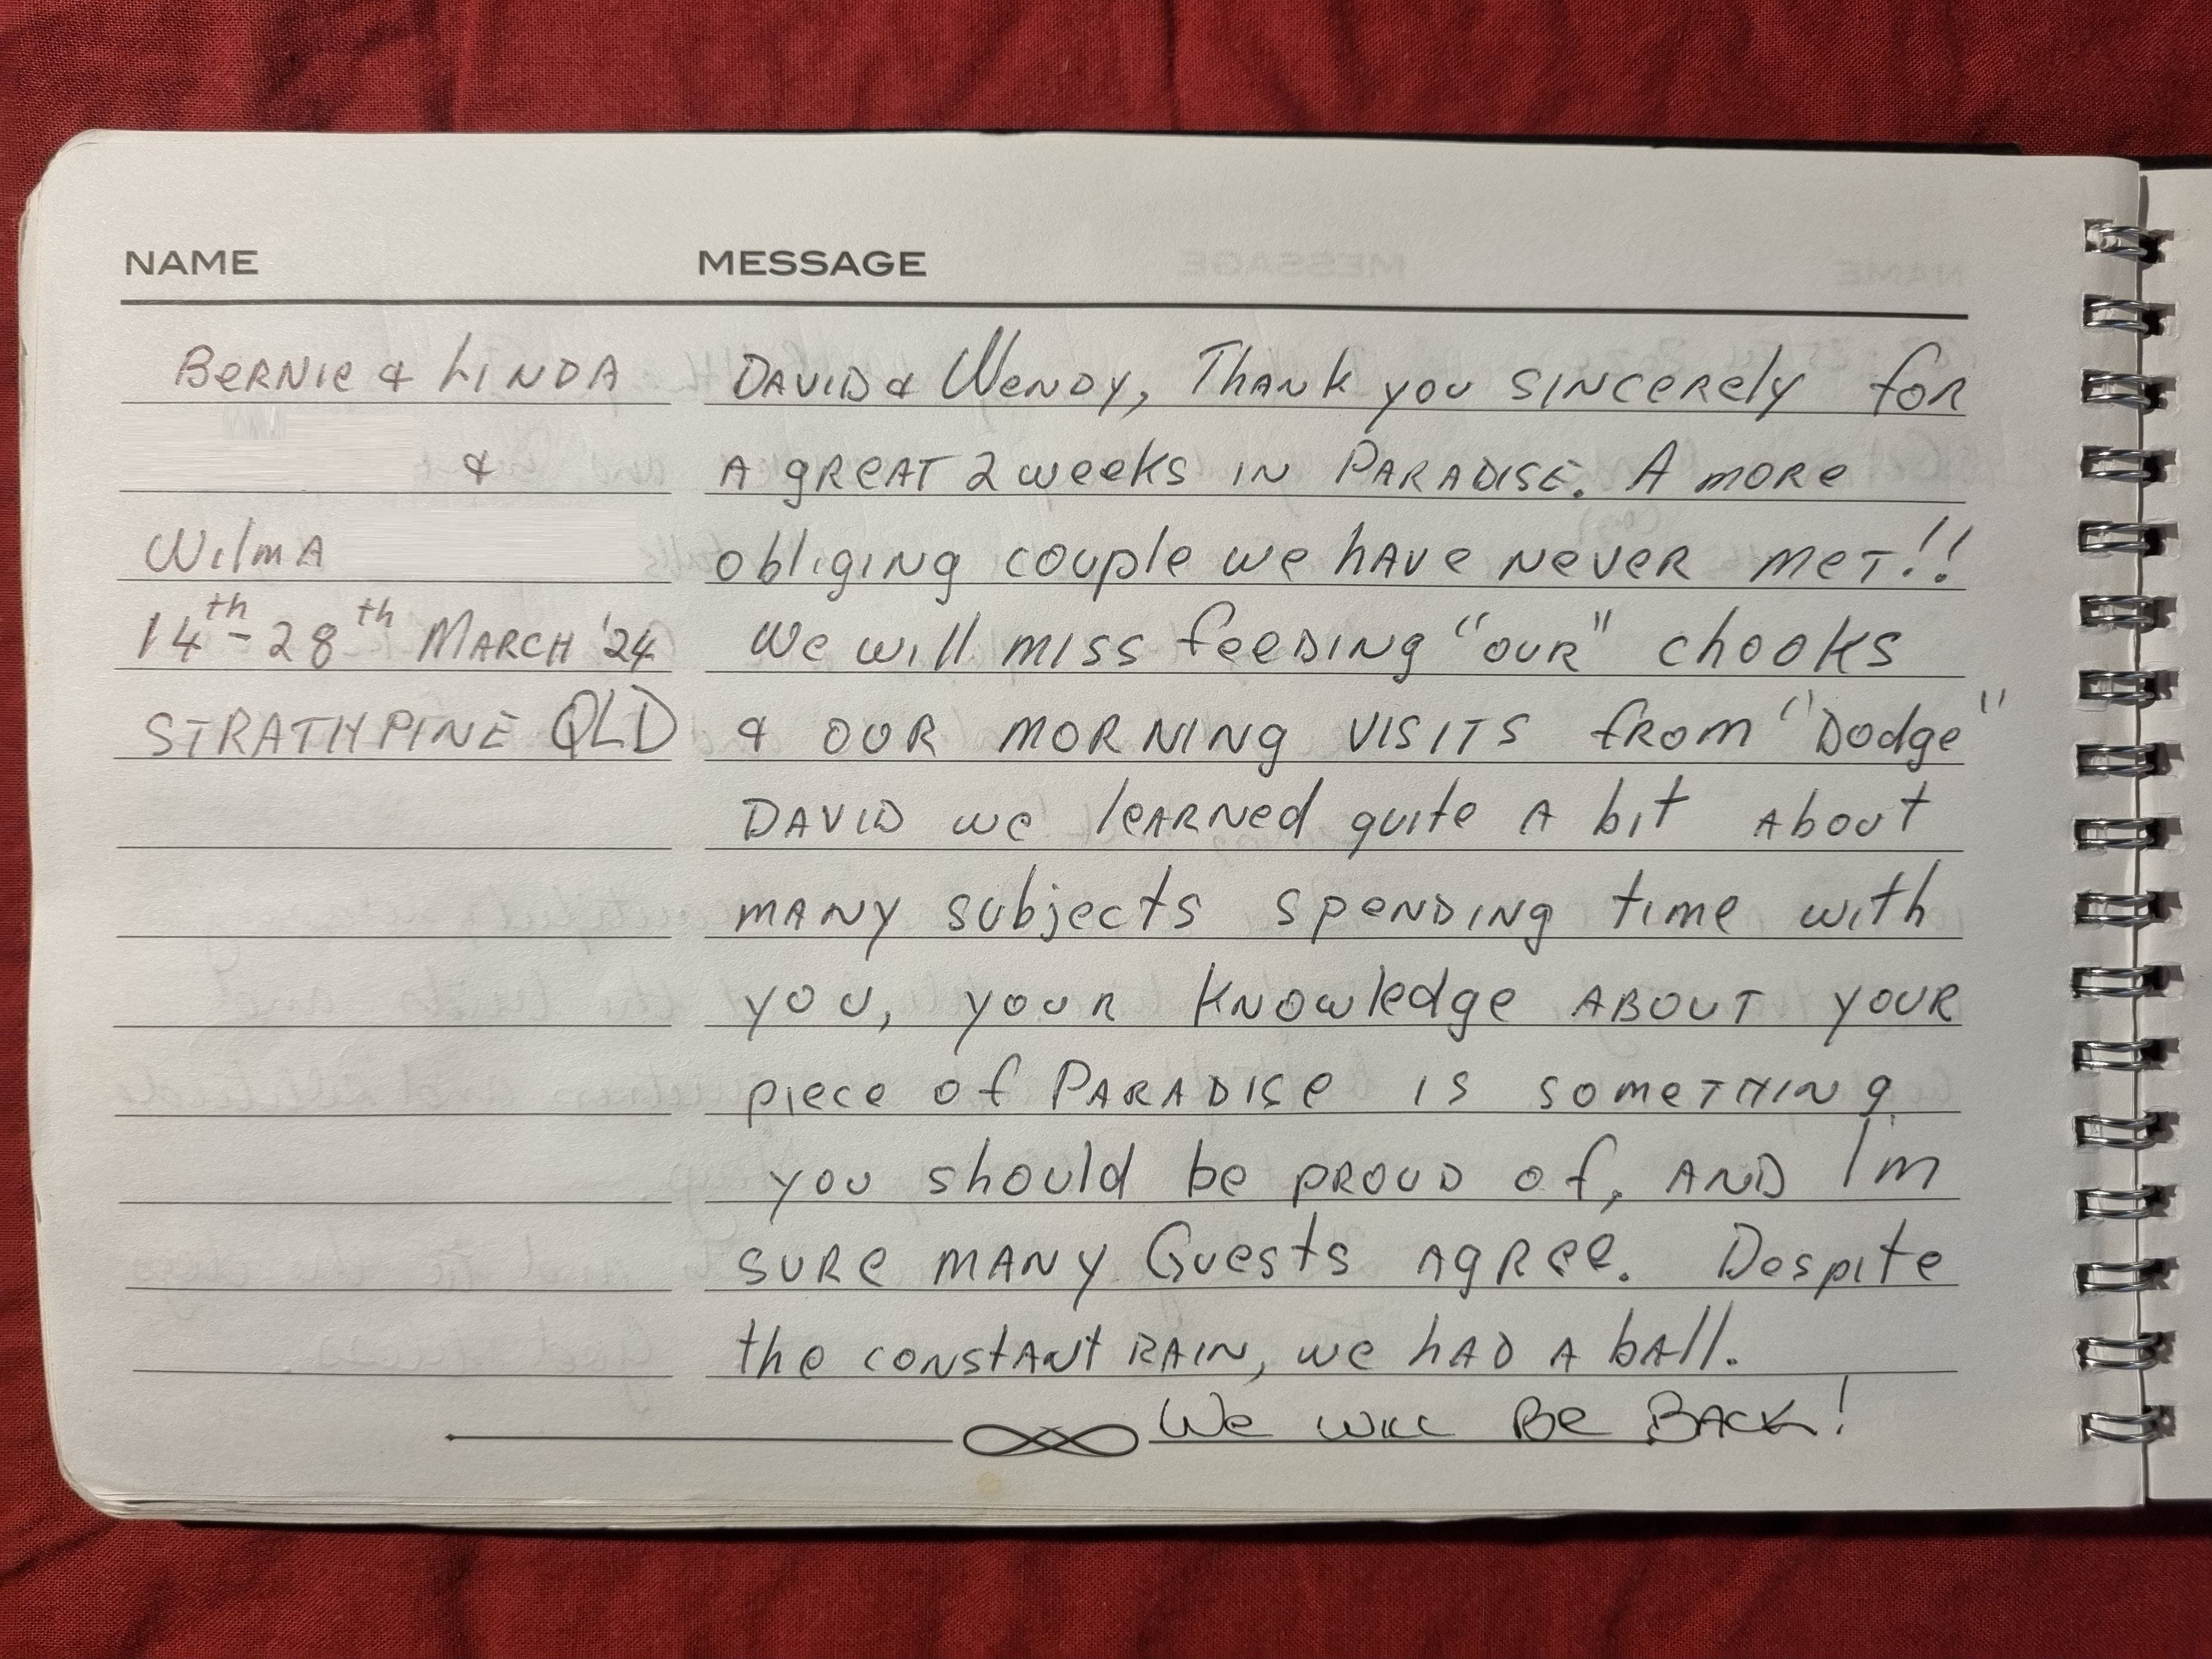 NAME
MESSAGE
BERNIE & LINDA
&
WilmA
14th-28th MARCH '24
STRATHPINE QLD
DAVID & WENDY, THANK you SINCERELY for
A GREAT 2 weeks IN PARADISE. A more
obliging couple we have NEVER MET!!
We will miss feeding "our" chooks
& OUR MORNING VISITS from "Dodge"
DAVID we leARNed quite A bit About
many subjects spending time with
you, your knowledge ABOUT YOUR
piece of PARADISE is something
you should be PROUD of, AND I'm
SURE MANY Guests AGREE. Despite
the CONSTANT RAIN, we had A bAll.
We WILL BE BACK!